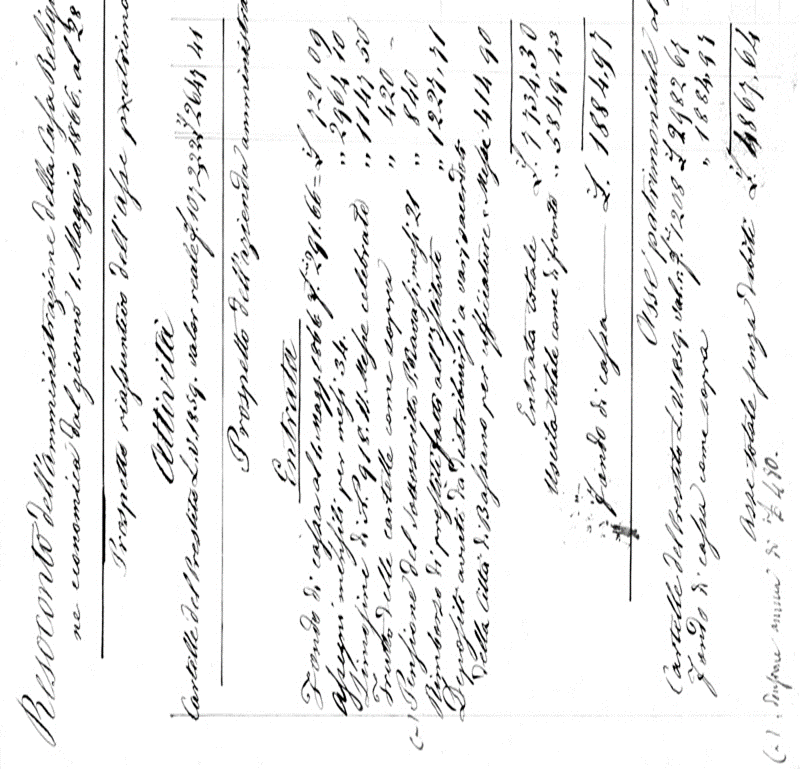 Resoconto dell'amministrazione della Casa Relig
ne economica dal giorno 1. Maggio 1866. al 28
Prospetto riassuntivo dell'Asse patrimo
Attività
Cartelle del Prestito L.V. 1859. valor reale 2647 41
Prospetto dell'azienda amministra
Entrata
Fondo di cassa al 1. Magg. 1866 291.66 = £ 720 09
Assegni mensili per mesi 34. " 2964 10
Limosine di N. 918 Messe celebrate " 1147 50
Frutto delle cartelle come sopra " 420 -
(-) Pensione del sottoscritto mesi 21 " 840 -
Rimborso di prestiti fatti all'Istituto " 1227,71
Depositi avuti da distribuirsi a varii sacerdoti
della Città di Bassano per ufficiature e Messe 414 90
Entrata totale £. 7734,30
Uscita totale come di fronte " 5849.43
Fondo di cassa £. 1884,97
Asse patrimoniale al
Cartelle del Prestito L.V. 1859. 1208 £ 2982 67
Fondo di cassa come sopra " 1884,97
Asse totale senza debiti £ 4867,64
(-). annui di £ 480.